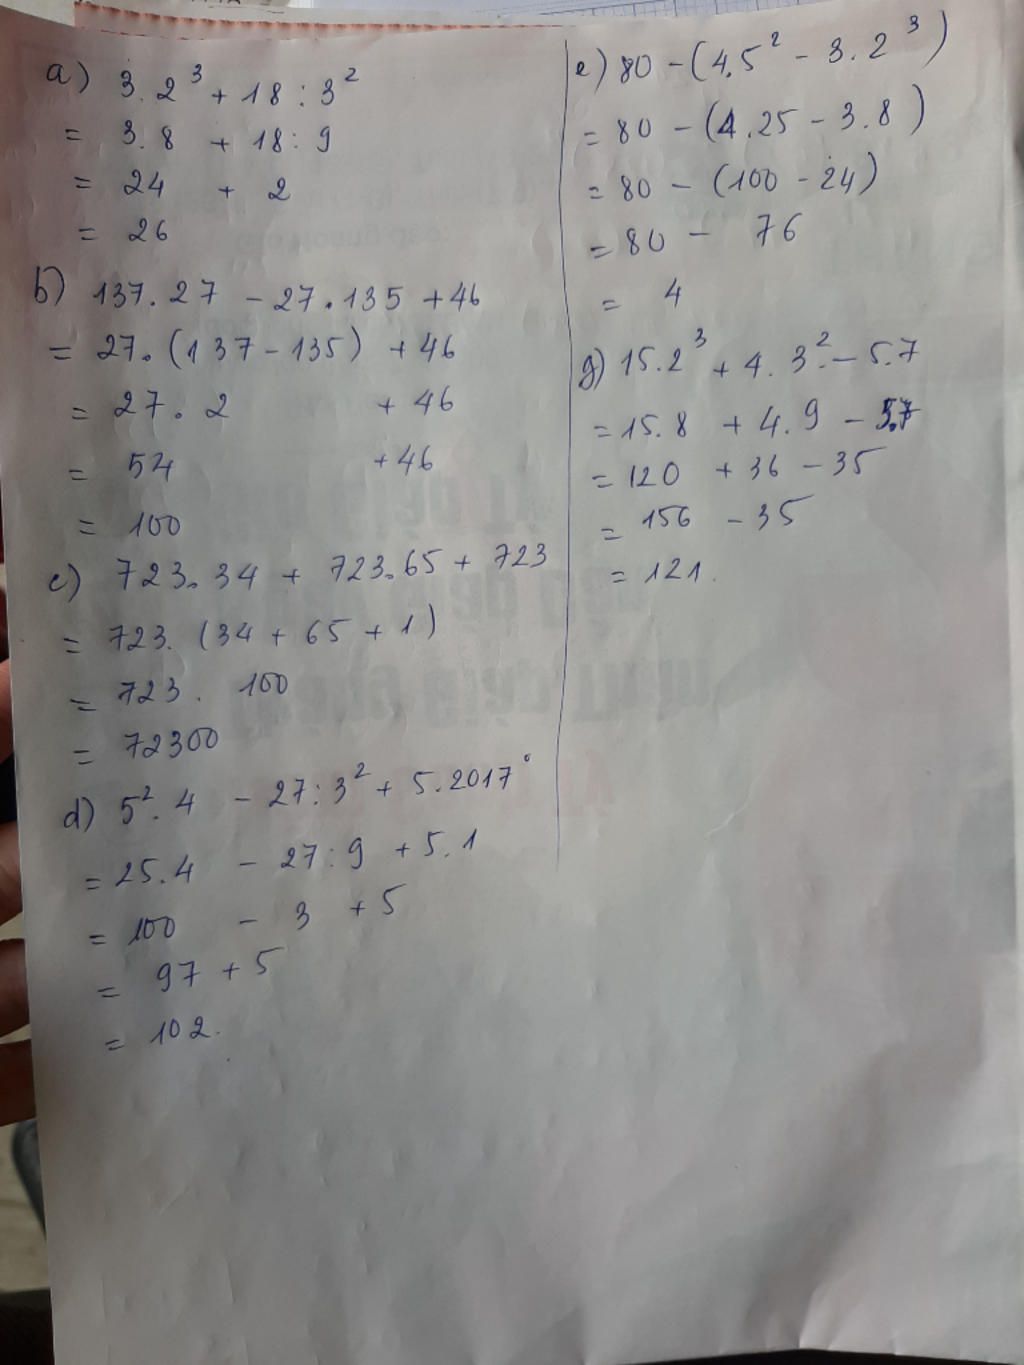 a) 3.2³ + 18 : 3²
= 3.8 + 18 : 9
= 24 + 2
= 26
b) 137.27 - 27.135 + 46
= 27.(137 - 135) + 46
= 27.2 + 46
= 54 + 46
= 100
c) 723.34 + 723.65 + 723
= 723.(34 + 65 + 1)
= 723.100
= 72300
d) 5².4 - 27 : 3² + 5.2017°
= 25.4 - 27 : 9 + 5.1
= 100 - 3 + 5
= 97 + 5
= 102.
e) 80 - (4.5² - 3.2³)
= 80 - (4.25 - 3.8)
= 80 - (100 - 24)
= 80 - 76
= 4
g) 15.2³ + 4.3² - 5.7
= 15.8 + 4.9 - 5.7
= 120 + 36 - 35
= 156 - 35
= 121.